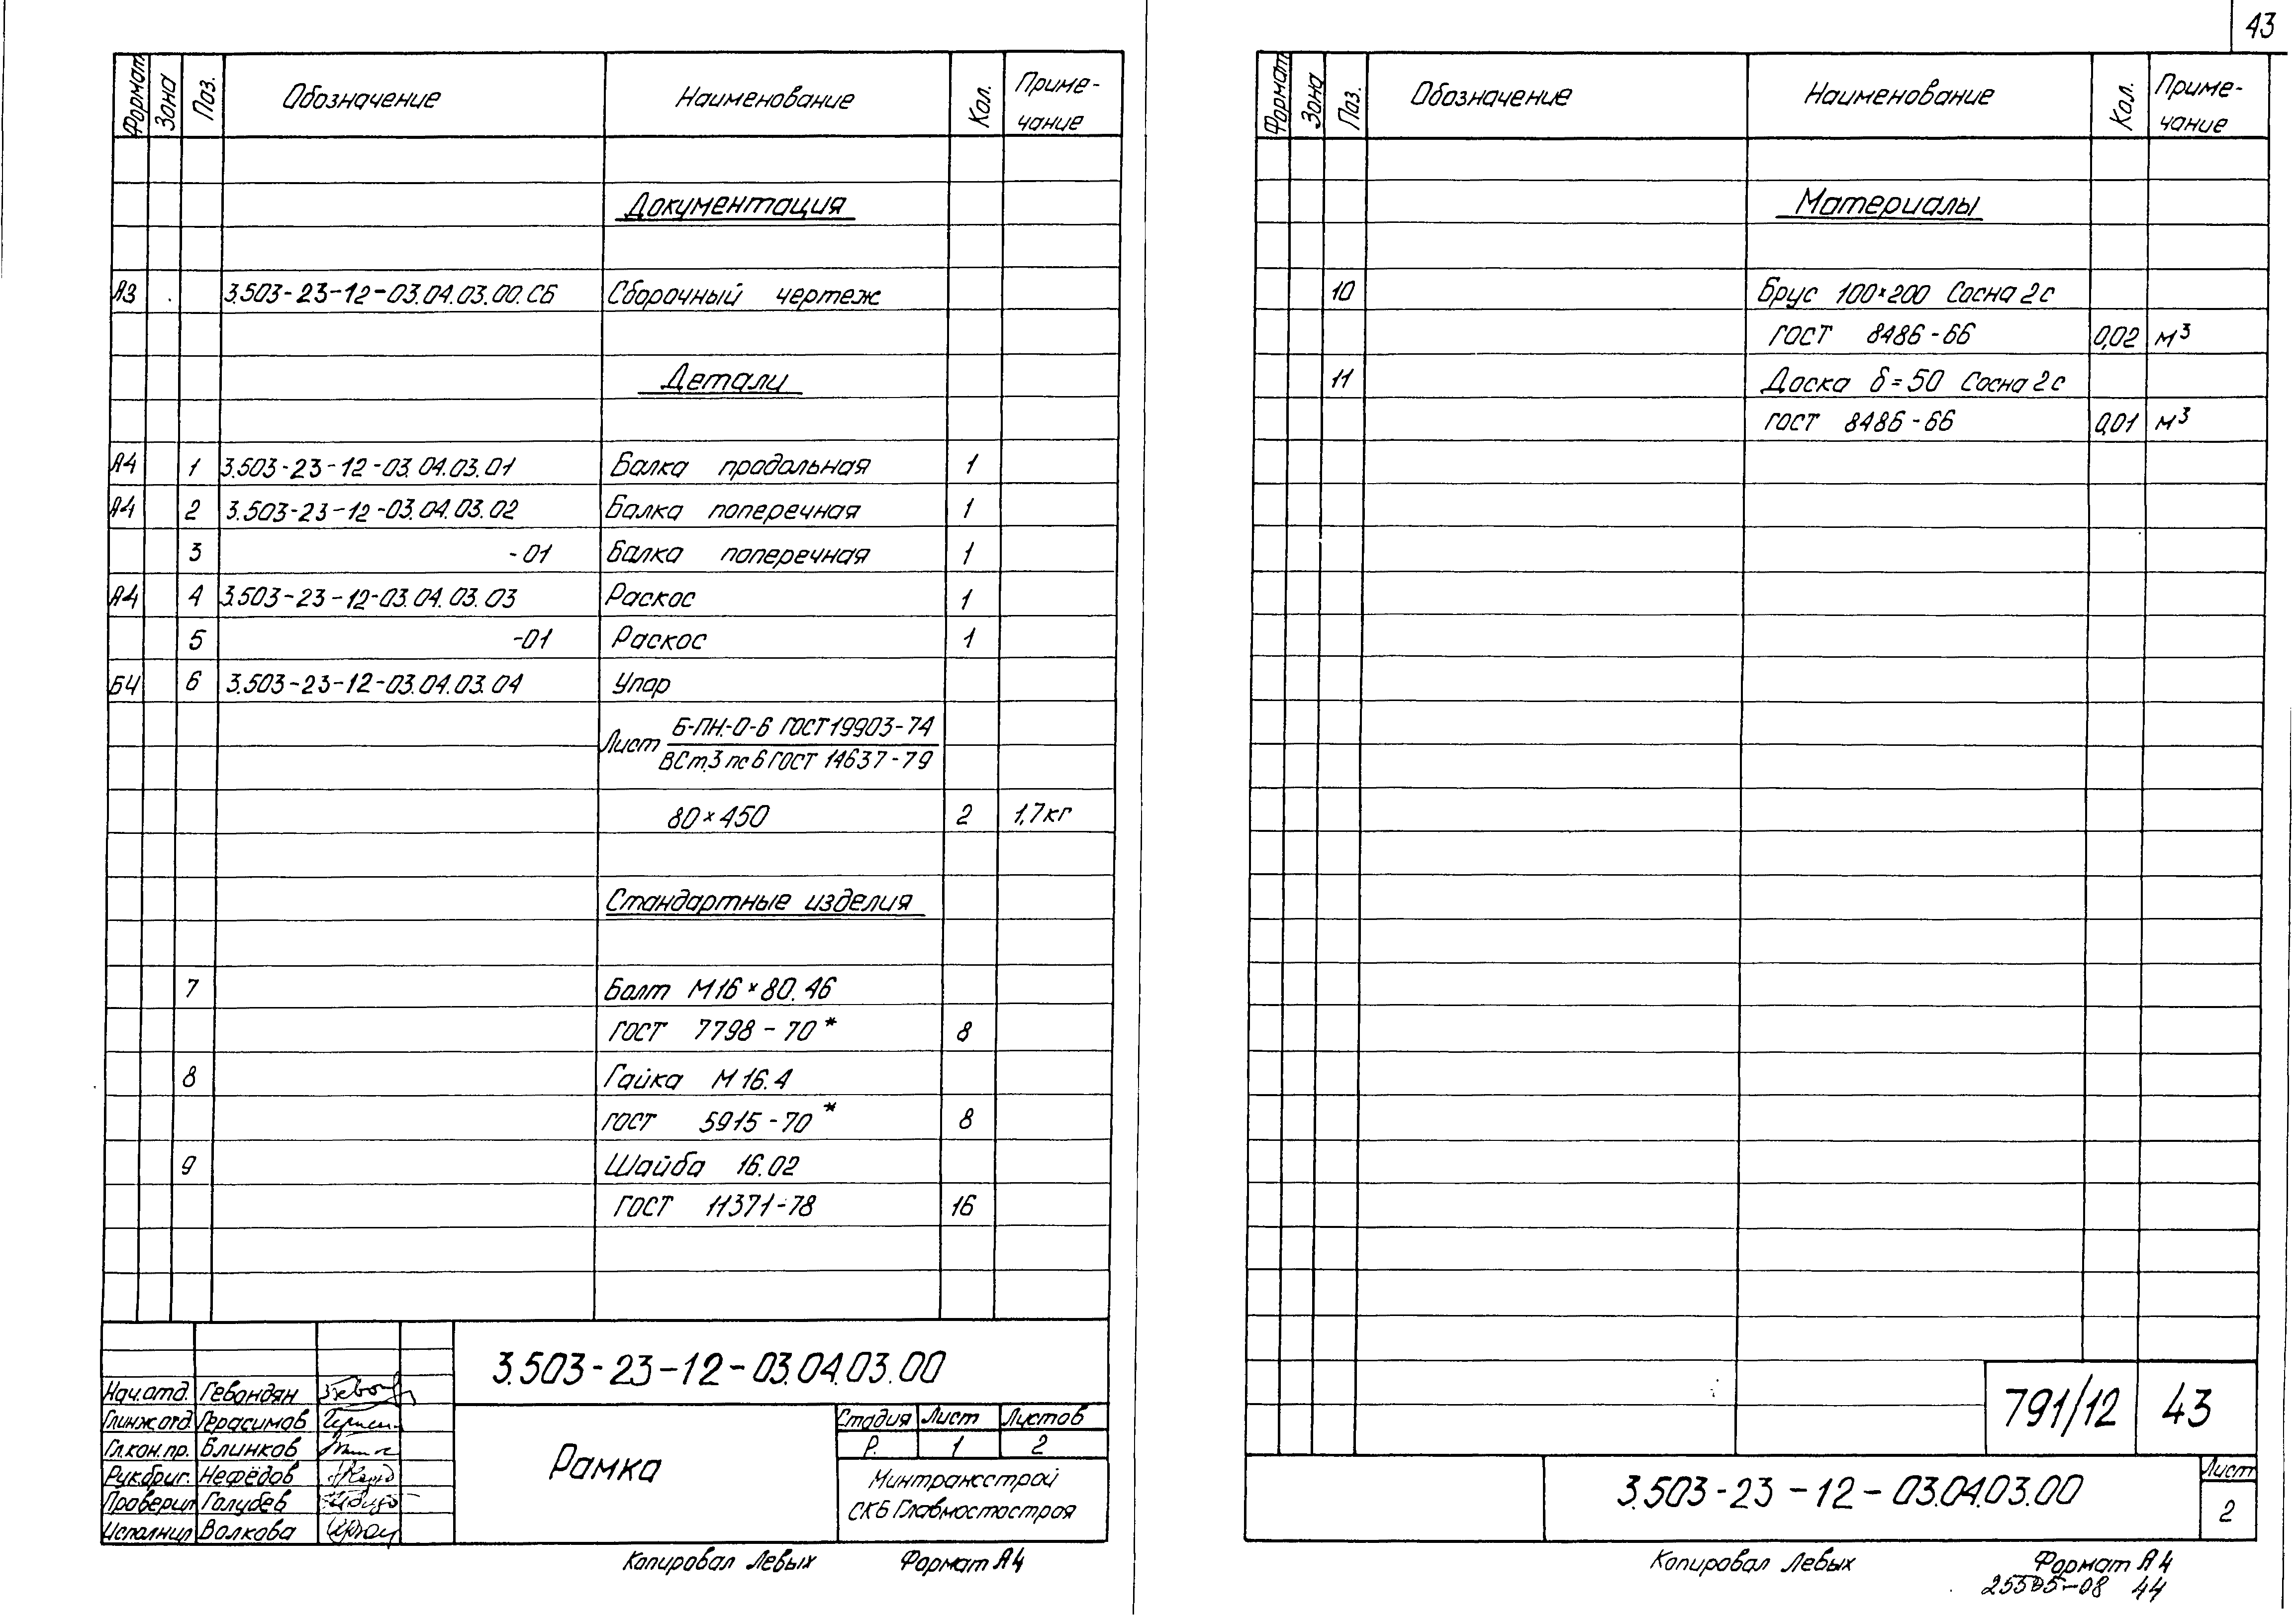 43
Формат Зона Поз. Обозначение Наименование Кол. Приме-
чание
Документация
А3 3.503-23-12-03.04.03.00.СБ Сборочный чертеж
Детали
А4 1 3.503-23-12-03.04.03.01 Балка продольная 1
А4 2 3.503-23-12-03.04.03.02 Балка поперечная 1
3 -01 Балка поперечная 1
А4 4 3.503-23-12-03.04.03.03 Раскос 1
5 -01 Раскос 1
Б4 6 3.503-23-12-03.04.03.04 Упор
Лист Б-ПН-О-6 ГОСТ 19903-74
ВСт.3 пс 6 ГОСТ 14637-79
80×450 2 1,7кг
Стандартные изделия
7 Болт М16×80.46
ГОСТ 7798-70* 8
8 Гайка М16.4
ГОСТ 5915-70* 8
9 Шайба 16.02
ГОСТ 11371-78 16
3.503-23-12-03.04.03.00
Нач.отд. Гевондян
Гл.инж.отд. Герасимов
Гл.кон.пр. Блинков
Рук.бриг. Нефёдов
Проверил Голубев
Исполнил Волкова
Рамка
Стадия Лист Листов
Р. 1 2
Минтрансстрой
СКБ Главмостостроя
Копировал Левых Формат А4
Формат Зона Поз. Обозначение Наименование Кол. Приме-
чание
Материалы
10 Брус 100×200 Сосна 2с
ГОСТ 8486-66 0,02 м³
11 Доска δ=50 Сосна 2с
ГОСТ 8486-66 0,01 м³
791/12 43
3.503-23-12-03.04.03.00 Лист
2
Копировал Левых Формат А4
25505-08 44